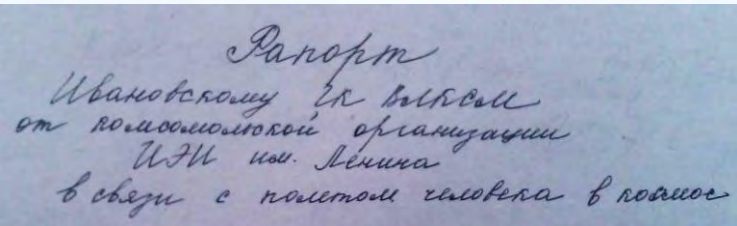 Рапорт
Ивановскому ГК ВЛКСМ
от комсомольской организации
ИЭИ им. Ленина
в связи с полетом человека в космос